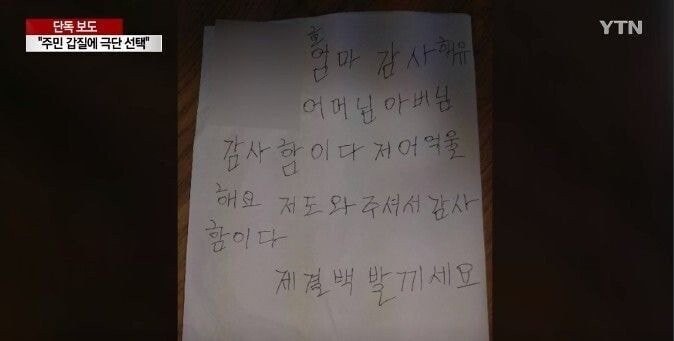 단독 보도
"주민 갑질에 극단 선택"
YTN
엄마 감사해유
어머님아버님
감사함이다 저어억울
해요 저도와주셔서감사
함이다
제결백 발끼세요